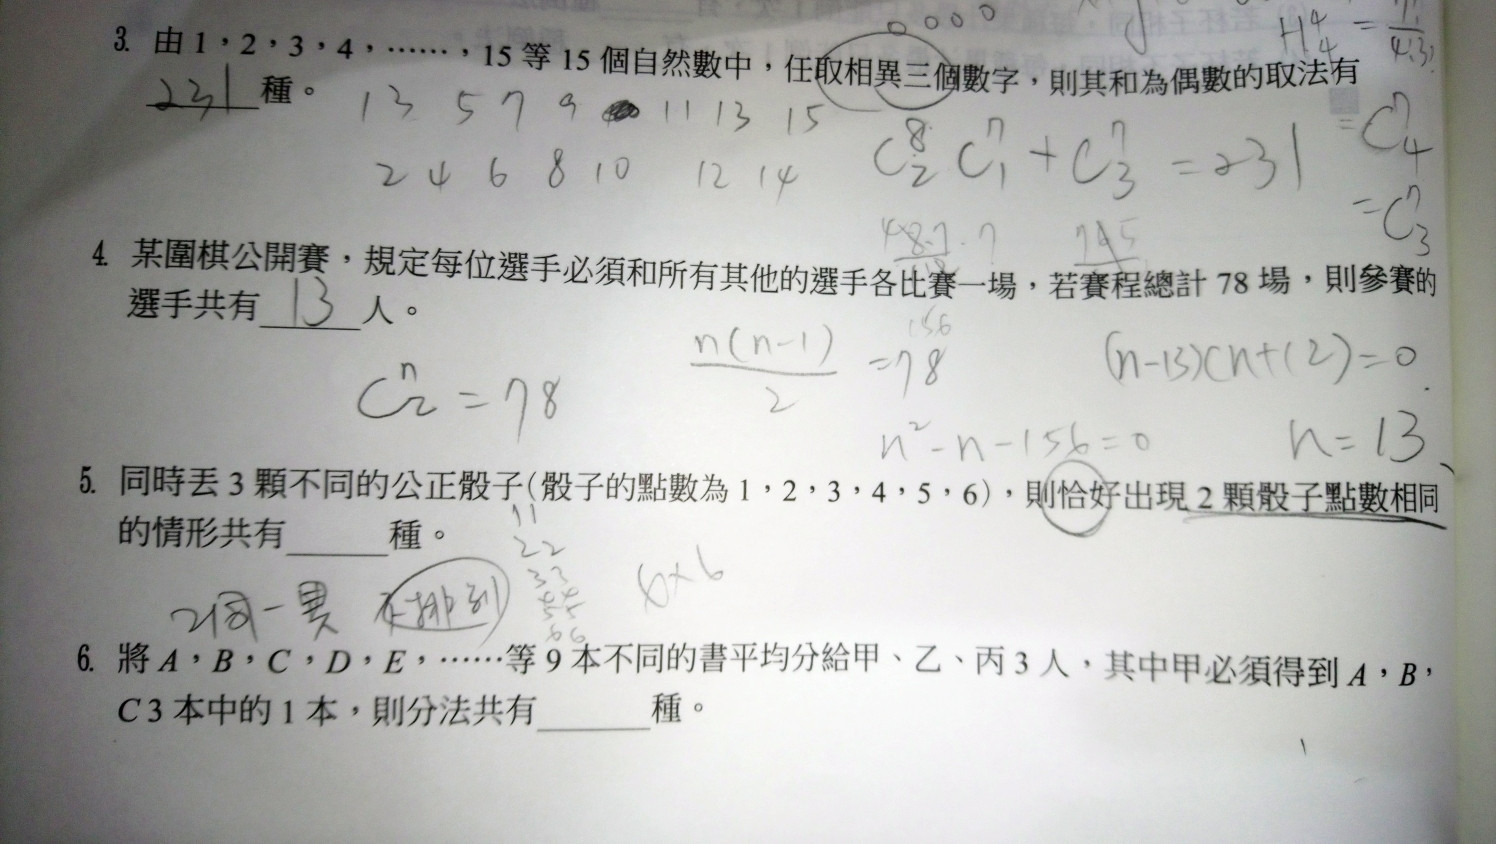 H⁴₄ = 7! / 4!3!
3. 由1，2，3，4，……，15等15個自然數中，任取相異三個數字，則其和為偶數的取法有
231 種。
1 3 5 7 9 11 13 15
= C⁷₄
2 4 6 8 10 12 14
C⁸₂ C⁷₁ + C⁷₃ = 231
= C⁷₃
4. 某圍棋公開賽，規定每位選手必須和所有其他的選手各比賽一場，若賽程總計78場，則參賽的
選手共有 13 人。
156
n(n-1) / 2 = 78
(n-13)(n+12)=0
Cⁿ₂ = 78
n²-n-156=0
n=13
5. 同時丟3顆不同的公正骰子(骰子的點數為1，2，3，4，5，6)，則恰好出現2顆骰子點數相同
的情形共有______種。
11
22
33
44
55
66
6×6
2同一異 不排列
6. 將A，B，C，D，E，……等9本不同的書平均分給甲、乙、丙3人，其中甲必須得到A，B，
C 3本中的1本，則分法共有______種。